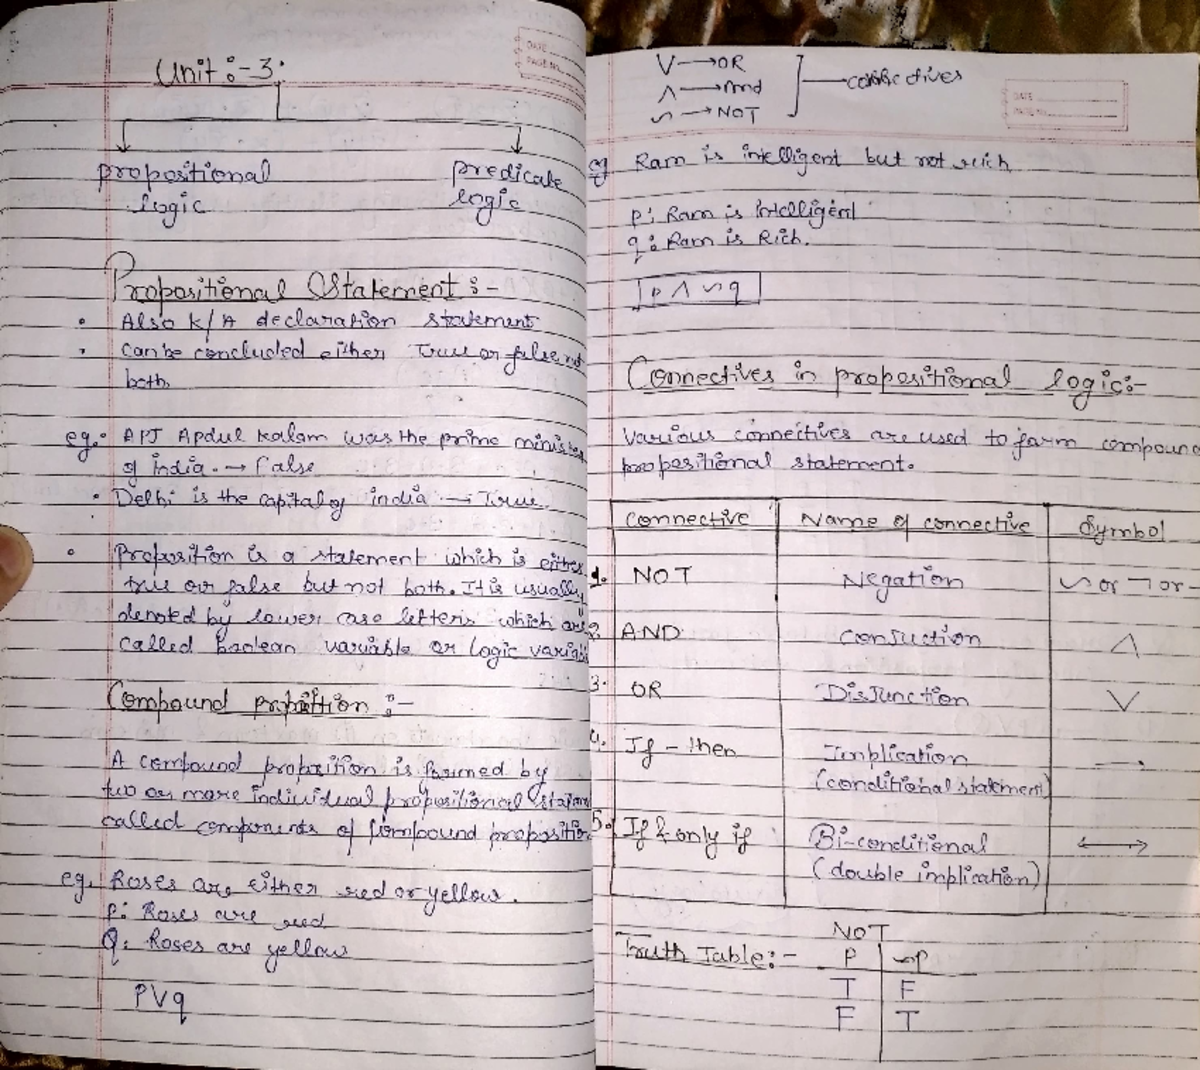 Unit :- 3:
propositional
logic
predicate
logic
Propositional Statement :-
• Also K/A declaration statement
• Can be concluded either True or false not
both.
eg:- APJ Apdul Kalam was the prime minister
of India. → False
• Delhi is the capital of india → True
• Proposition is a statement which is either
true or false but not both. It is usually
denoted by lower case letters which are
called boolean variable or logic variable
Compound proposition :-
A compound proposition is formed by
two or more individual propositional statement
called components of compound proposition
eg. Roses are either red or yellow.
P: Roses are red
Q: Roses are yellow
PVq
DATE
PAGE NO.
V → OR
∧ → And
~ → NOT
connectives
DATE
eg Ram is intelligent but not rich
p: Ram is intelligent
q: Ram is Rich.
p ∧ ~q
Connectives in propositional logic:-
Various connectives are used to form compound
propositional statement.
Connective Name of connective Symbol
1. NOT Negation ~ or ¬ or -
2. AND Conjuction ∧
3. OR DisJunction V
4. If - then Implication →
(conditional statement)
5. If & only if Bi-conditional ↔
(double implication)
NOT
Truth Table:- P ~P
T F
F T